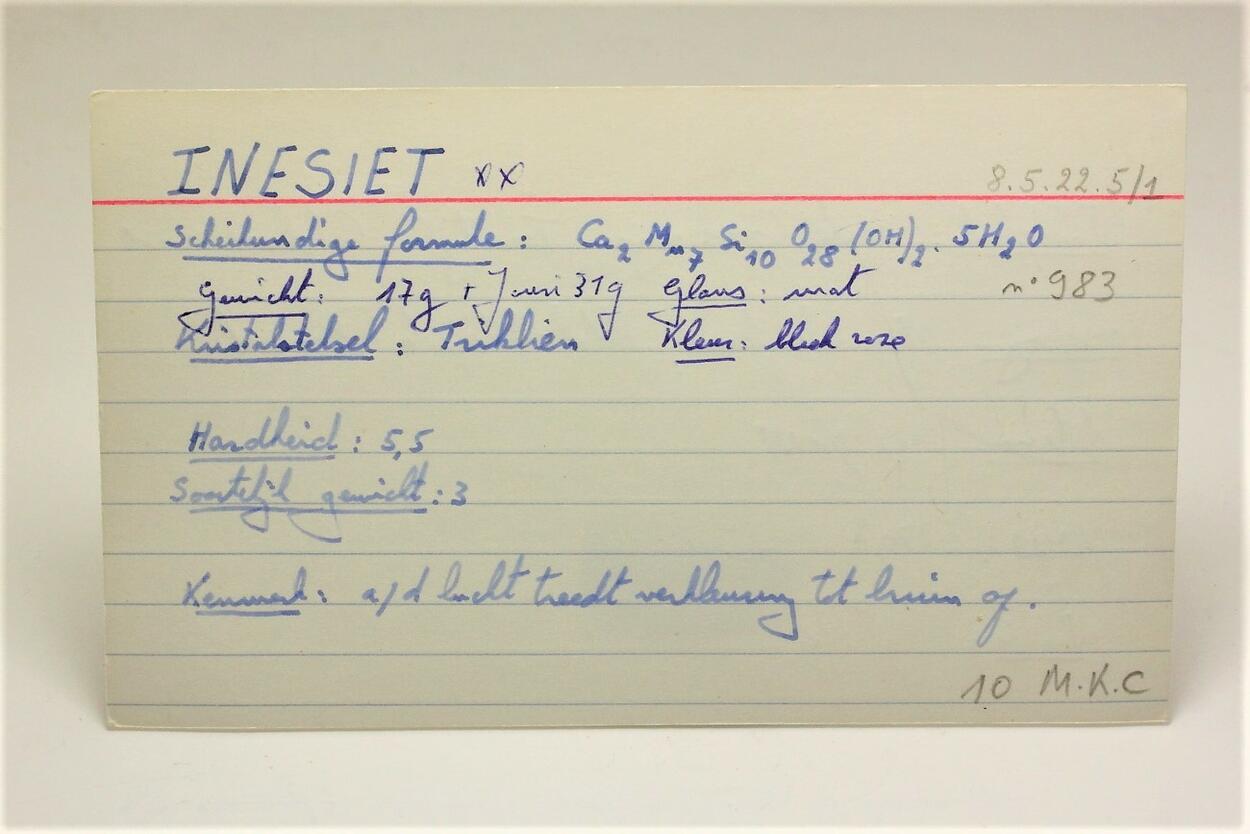 INESIET xx 8.5.22.5/1
Scheikundige formule : Ca2 Mn7 Si10 O28 (OH)2. 5H2O
Gewicht: 17g + 31g Glans: mat n° 983
Kristalstelsel : Triklien Kleur: bleek roze
Hardheid : 5,5
Soortelijk gewicht : 3
Kenmerk: a/d lucht treedt verkleuring tot bruin op.
10 M.K.C